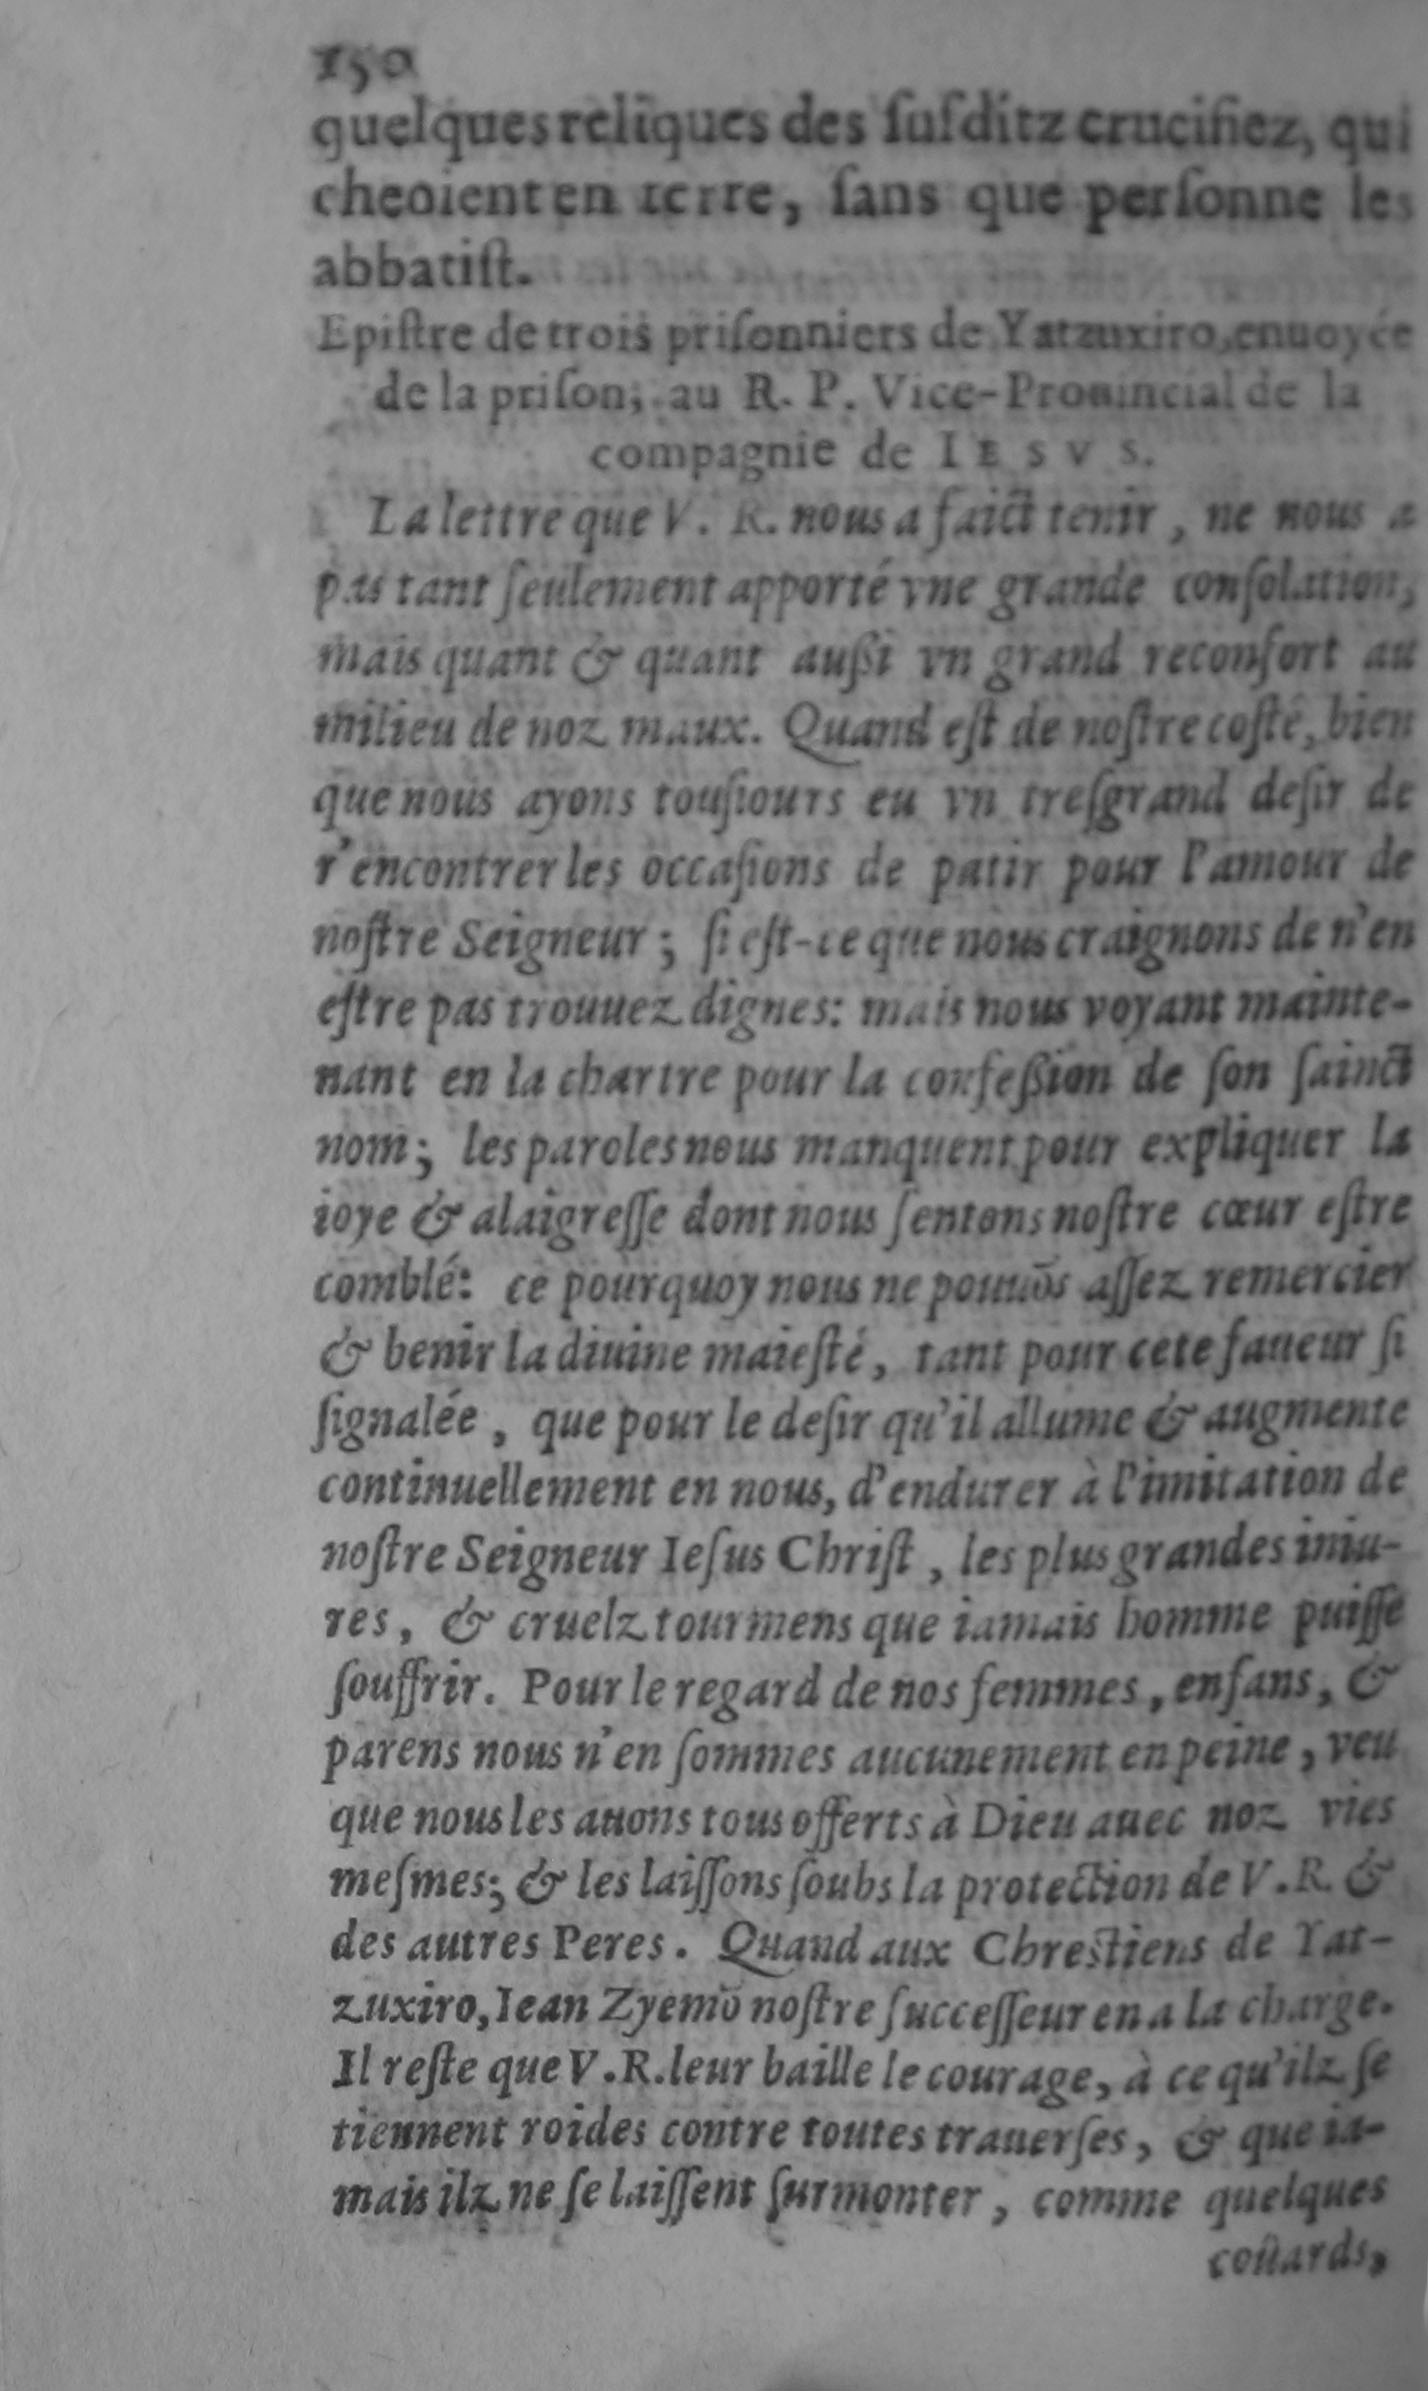 150
quelques reliques des ſuſditz crucifiez, qui
cheoient en terre, ſans que perſonne les
abbatiſt.
Epiſtre de trois priſonniers de Yatzuxiro, enuoyée
de la priſon, au R. P. Vice-Prouincial de la
compagnie de IESVS.
La lettre que V. R. nous a faict tenir, ne nous a
pas tant ſeulement apporté vne grande conſolation,
mais quant & quant außi vn grand reconfort au
milieu de noz maux. Quand eſt de noſtre coſté, bien
que nous ayons touſiours eu vn treſgrand deſir de
r'encontrer les occaſions de patir pour l'amour de
noſtre Seigneur; ſi eſt-ce que nous craignons de n'en
eſtre pas trouuez dignes: mais nous voyant mainte-
nant en la chartre pour la confeßion de ſon ſainct
nom; les paroles nous manquent pour expliquer la
ioye & alaigreſſe dont nous ſentons noſtre cœur eſtre
comblé: ce pourquoy nous ne pouuõs aſſez remercier
& benir la diuine maieſté, tant pour cete faueur ſi
ſignalée, que pour le deſir qu'il allume & augmente
continuellement en nous, d'endurer à l'imitation de
noſtre Seigneur Ieſus Chriſt, les plus grandes iniu-
res, & cruelz tourmens que iamais homme puiſſe
ſouffrir. Pour le regard de nos femmes, enfans, &
parens nous n'en ſommes aucunement en peine, veu
que nous les auons tous offerts à Dieu auec noz vies
meſmes; & les laiſſons ſoubs la protection de V. R. &
des autres Peres. Quand aux Chreſtiens de Yat-
zuxiro, Iean Zyemõ noſtre ſucceſſeur en a la charge.
Il reſte que V. R. leur baille le courage, à ce qu'ilz ſe
tiennent roides contre toutes trauerſes, & que ia-
mais ilz ne ſe laiſſent ſurmonter, comme quelques
coüards,